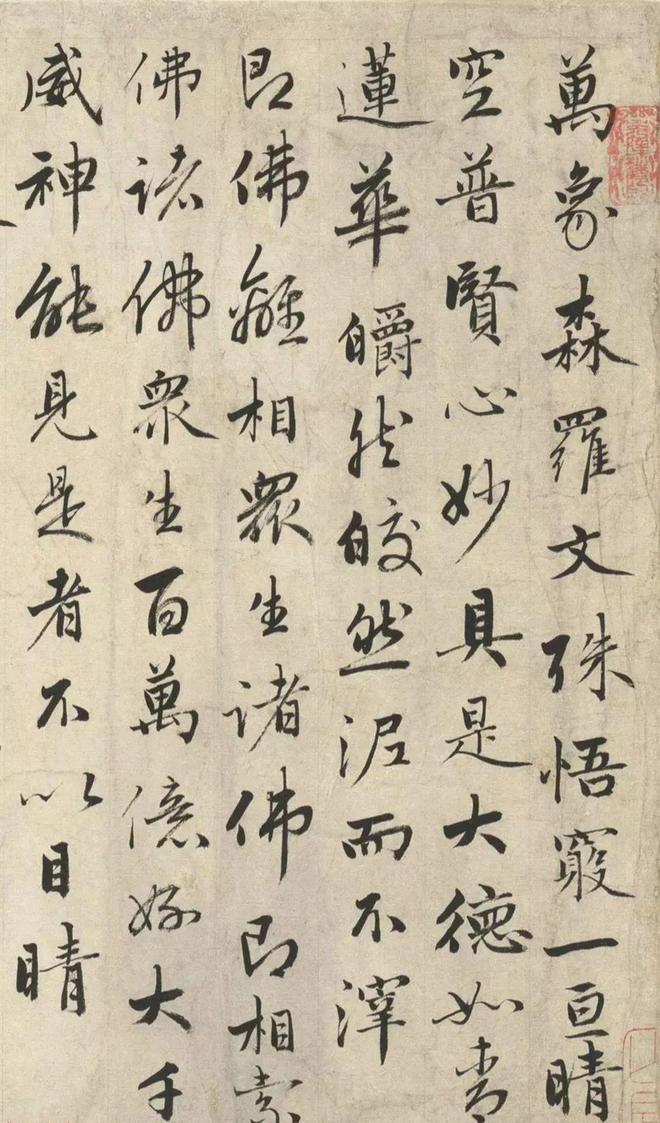 萬象森羅文殊悟窮一亘晴
空普賢心妙具是大德如青
蓮華皭然皎然泥而不滓
即佛離相衆生諸佛即相索
佛諸佛衆生百萬億好大千
威神能見是者不以目睛